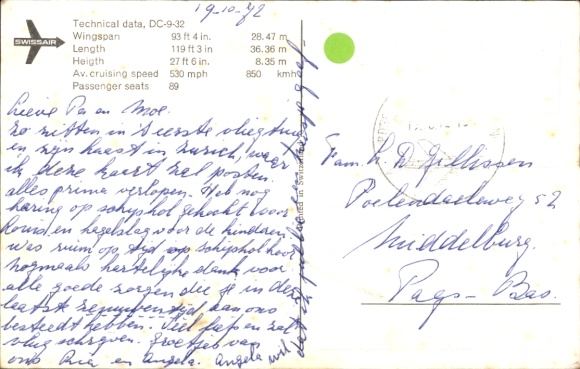 19-10-72
SWISSAIR
Technical data, DC-9-32
Wingspan 93 ft 4 in. 28.47 m
Length 119 ft 3 in 36.36 m
Heigth 27 ft 6 in. 8.35 m
Av. cruising speed 530 mph 850 kmh
Passenger seats 89
Lieve Pa en Moe.
zo zitten in 't eerste vliegtuig
en zijn haast in Zurich, waar
ik deze kaart zal posten
alles prima verlopen. Heb nog
haring op schiphol gekocht voor
Louis en hagelslag voor de kinderen
was ruim op tijd op schiphol hoor
nogmaals hartelijke dank voor
alle goede zorgen die je in deze
laatste tijd aan ons
besteedt hebben. Veel en zal
vlug schrijven. Groetjes van
ons Ria en Angela. Angela wil
dat ik jullie
Printed in Switzerland
Fam. L. D. Jillissen
Poelendaeleweg 52
Middelburg.
Pays-Bas.